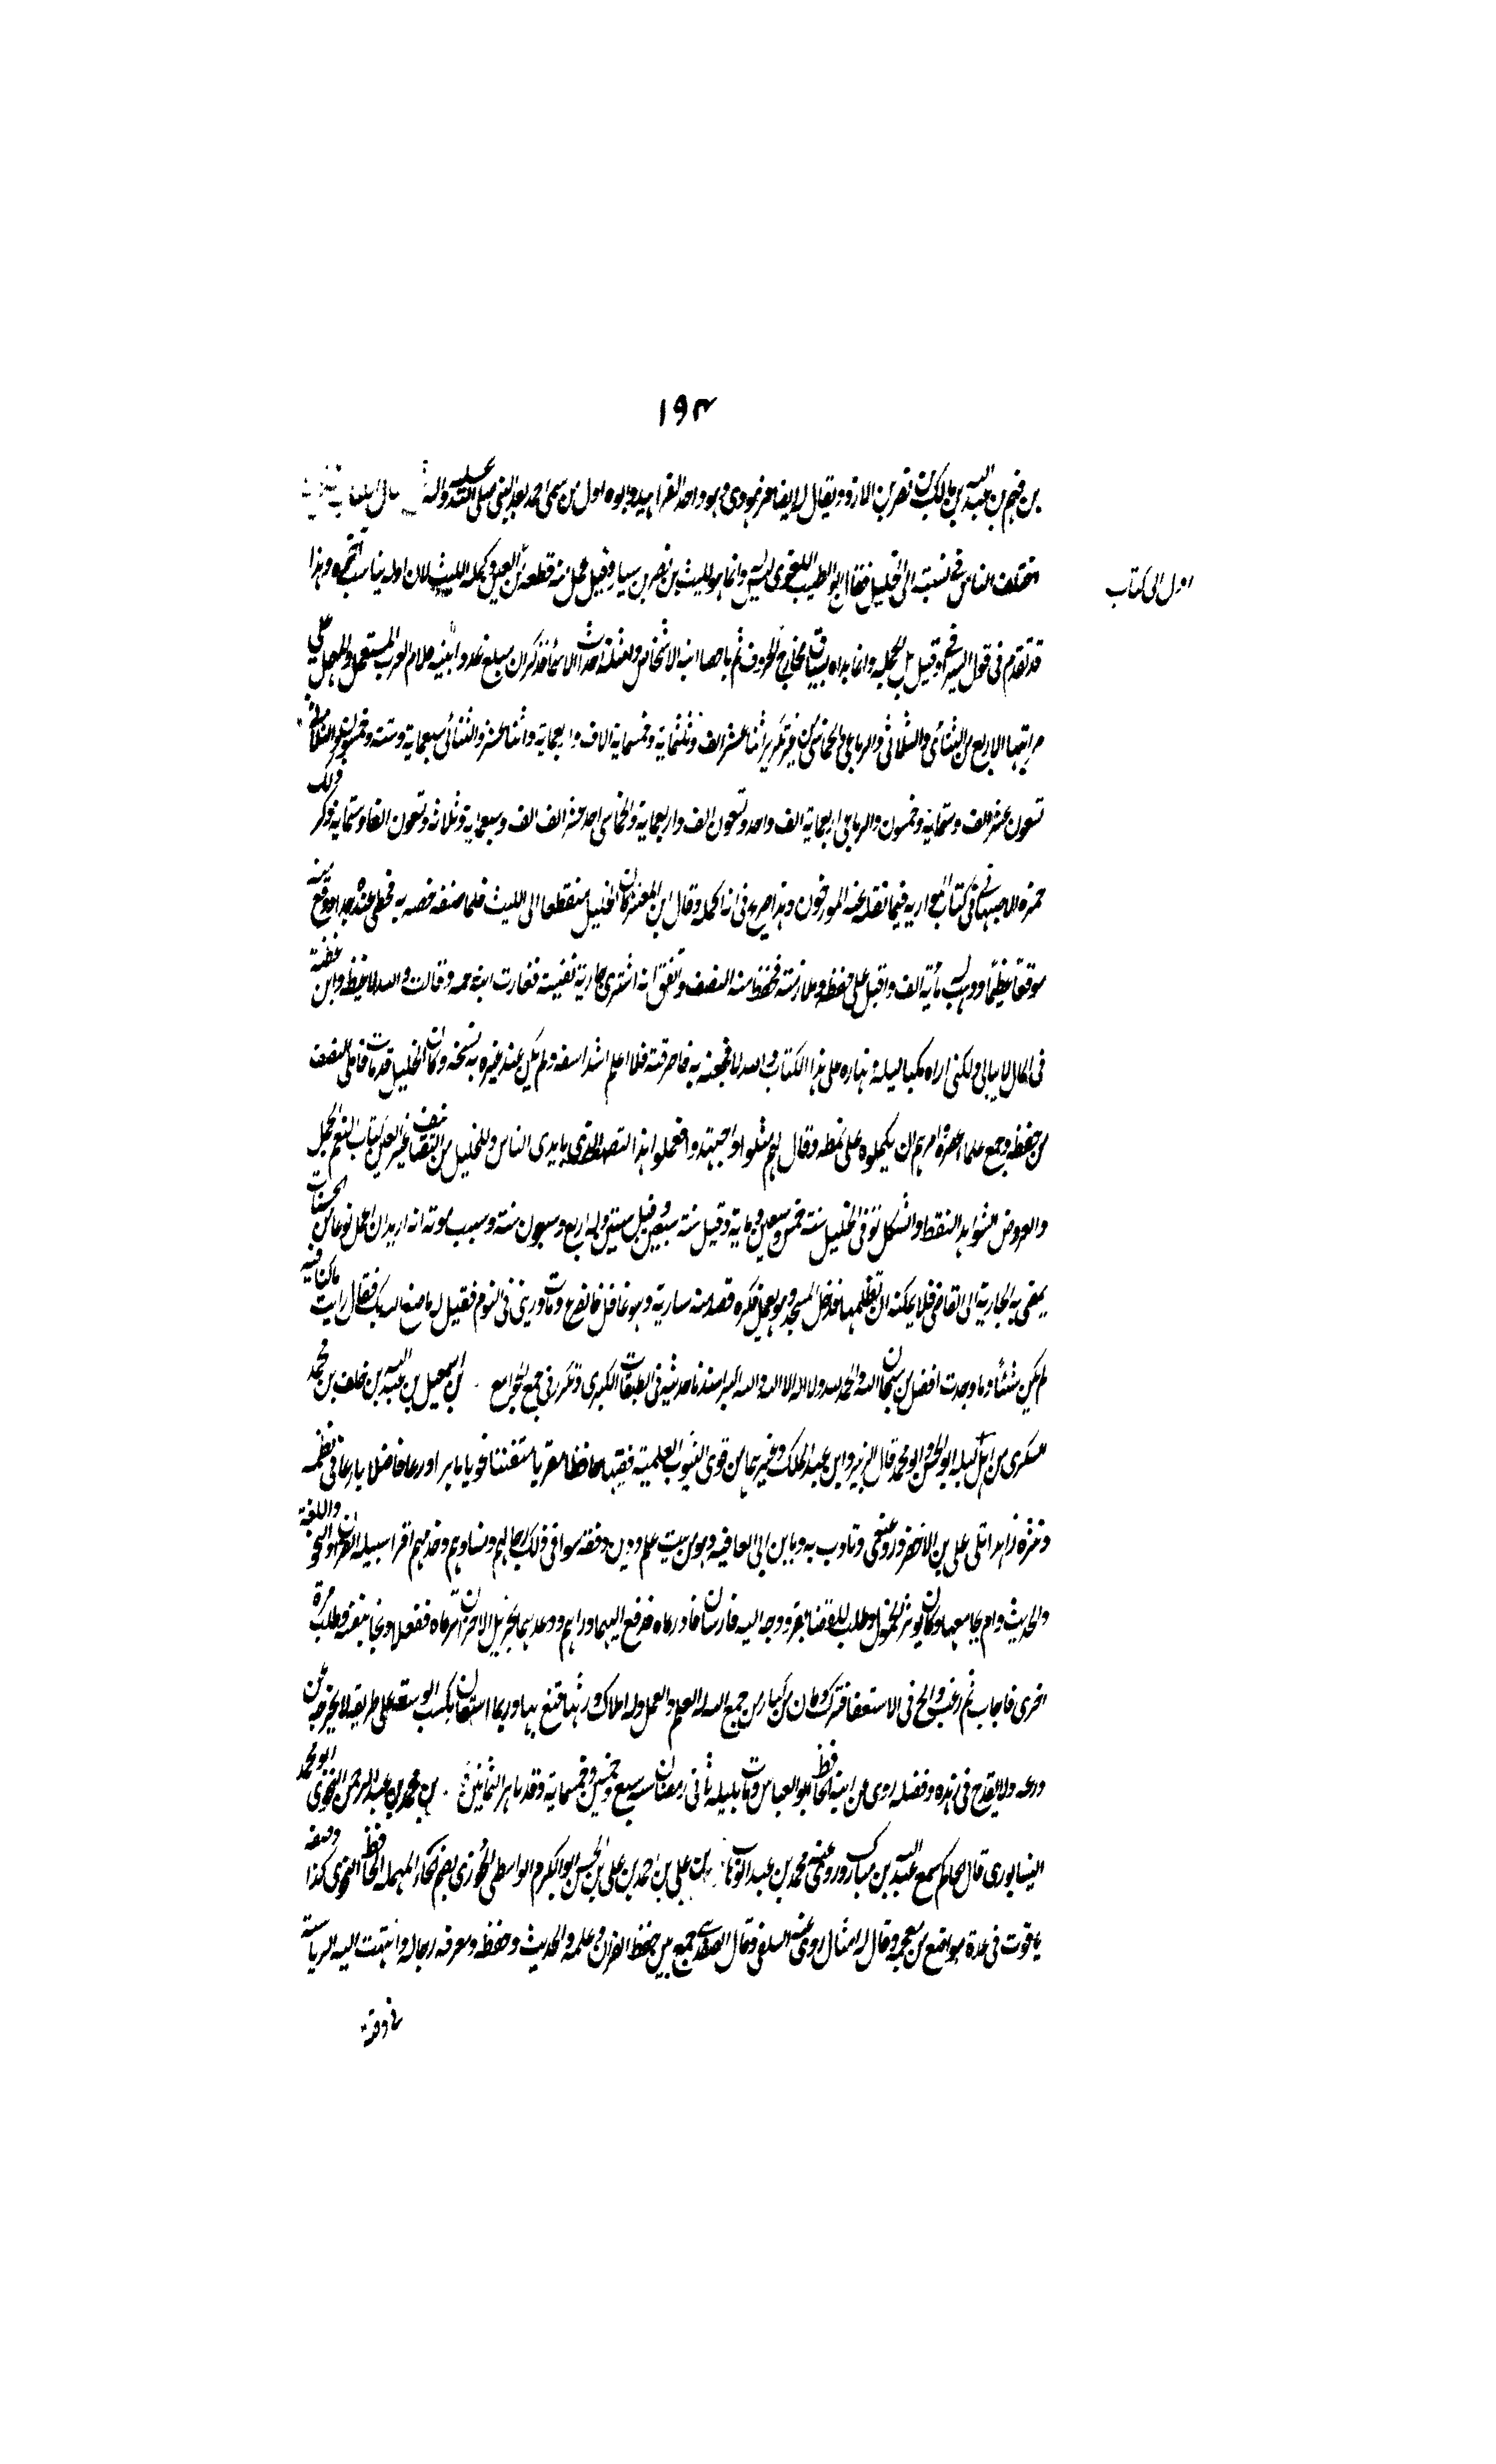 ١٩٣
بن فهم بن عبد الله بن مالك بن نصر بن الازد ويقال له ايضا فرهودى وهو واحد الفراهيد وابوه اول من سمى احمد بعد النبى صلى الله عليه وآله
اول الى كتاب
اختلف الناس فى نسبته الى الخليل فقال ابو الطيب اللغوى ليس له وانما هو لليث بن نصر بن سيار وقيل عمل منه قطعة من العين وكمله الليث لان اوله يناسب آخره وهذا
قد تقدم فى قول السيرافى وقيل بل اكمله وانما بداه بسياق مخارج الحروف ثم باحصا ابنية الاشخاص وامثلة احداث الاسما فذكر ان مبلغ عدد ابنية كلام العرب المستعمل والمهمل على
مراتبها الاربع من الثنائى والثلاثى والرباعى والخماسى من غير تكرير اثنا عشر الف وثلثماية وخمسماية الاف واربعماية واثنا عشر والثنائى سبعماية وستة وخمسون والثلاثى
تسعون عشر الف وستماية وخمسون والرباعى اربعماية الف واحد وتسعون الف واربعماية والخماسى احد عشر الف الف وسبعماية وثلاثة وتسعون الفا وستماية ذكر ذلك
حمزة الاصبهانى فى كتاب الموازنة فيما نقله عنه المورخون وهذا صريح فى انه اكمله وقال ابن المعتز كان الخليل منقطعا الى الليث فلما صنفه خصه به فحظى عنده جدا ووقع منه
موقعا عظيما ووهب له مائة الف واقبل على حفظه وملازمته فحفظ منه النصف واتفق انه اشترى جارية نفيسة فغارت ابنة عمه وقالت والله لاغيظنه وان غظته
فى المال لا يبالى ولكنى اراه مكبا ليله ونهاره على هذا الكتاب والله لافجعنه به فاحرقته فلما علم اشتد اسفه ولم يكن عند غيره به نسخة وكان الخليل قد مات فاملى النصف
من حفظه وجمع علماء عصره وامرهم ان يكملوه على نمطه وقال لهم مثلوا واجتهدوا فعملوا هذا التصنيف الذى بايدى الناس وللخليل من التصانيف غير العين كتاب النغم الجمل
والعروض الشواهد النقط والشكل توفى الخليل سنة خمس وسبعين وماية وقيل سنة سبعين وقيل ستين وله اربع وسبعون سنة وسبب موته انه قال اريد ان اعمل نوعا من الحساب
يمضى به الجارية الى القاضى فلا يمكنه ان يظلمها فدخل المسجد وهو يعمل فكره فصدمته سارية وهو غافل فانصرع ومات ورئى فى النوم فقيل له ما صنع الله بك فقال رايت ما كنا فيه
لم يكن شيئا وما وجدت افضل من سبحان الله والحمد لله ولا اله الا الله والله اكبر اسندنا حديثه فى الطبقات الكبرى وتكرر فى جمع الجوامع بن اسمعيل بن عبد الله بن خلف بن محمد
السكرى من اهل لبله ابو الحسن وابو محمد قال الزبير وابن عبد الملك وغيرهما من ذوى البيوت العلمية فقيها حافظا مقريا متفننا نحويا ماهرا ورعا فاضلا بارعا فى نظمه
ونثره زاهدا تلى على بن الاخضر وروى عنه وتادب به وبابن ابى العافية وهو من بيت علم ودين وفقه سوا فى ذلك رجالهم ونساؤهم وخدمهم اقرا اشبيلية القران والنحو واللغة
والحديث وام بجامعها وكان يوثر الخمول وطلب للقضا ففر ووجه اليه فارسان فادركاه فدفع اليهما دراهم ووعدهما بجزيل الاخر ان تركاه ففعلا ونجا بنفسه وطلب مرة
اخرى فاجاب ثم رغب والح فى الاستعفا فترك وكان من كبار من جمع الله له العلم والعمل وله املاك ورثها قنع بها وربما استعان بكسب الوسقة على طريقة لا يخرجه عن
ورعه ولا يقدح فى زهده وفضله روى عن ابنه الحافظ ابو العباس ومات بلبلة ثانى رمضان سنة سبع وخمسين وخمسماية وقد ناهز الثمانين بن محمد بن عبد الرحمن النحوى ابو محمد
النيسابورى قال الحاكم سمع عبد الله بن مبارك وروى عنه محمد بن عبد الوهاب بن على بن احمد بن على بن الحسن ابو الكرم الواسطى الحوزى بضم الحاء المهملة الحافظ النحوى كذا وصفه
ياقوت فى عدة مواضع من معجمه وقال له امثال روى عنه السلفى وقال الصفدى جمع بين حفظ القران وعلمه والحديث وحفظه ومعرفة رجاله وانتهت اليه الرياسة
فى وقته